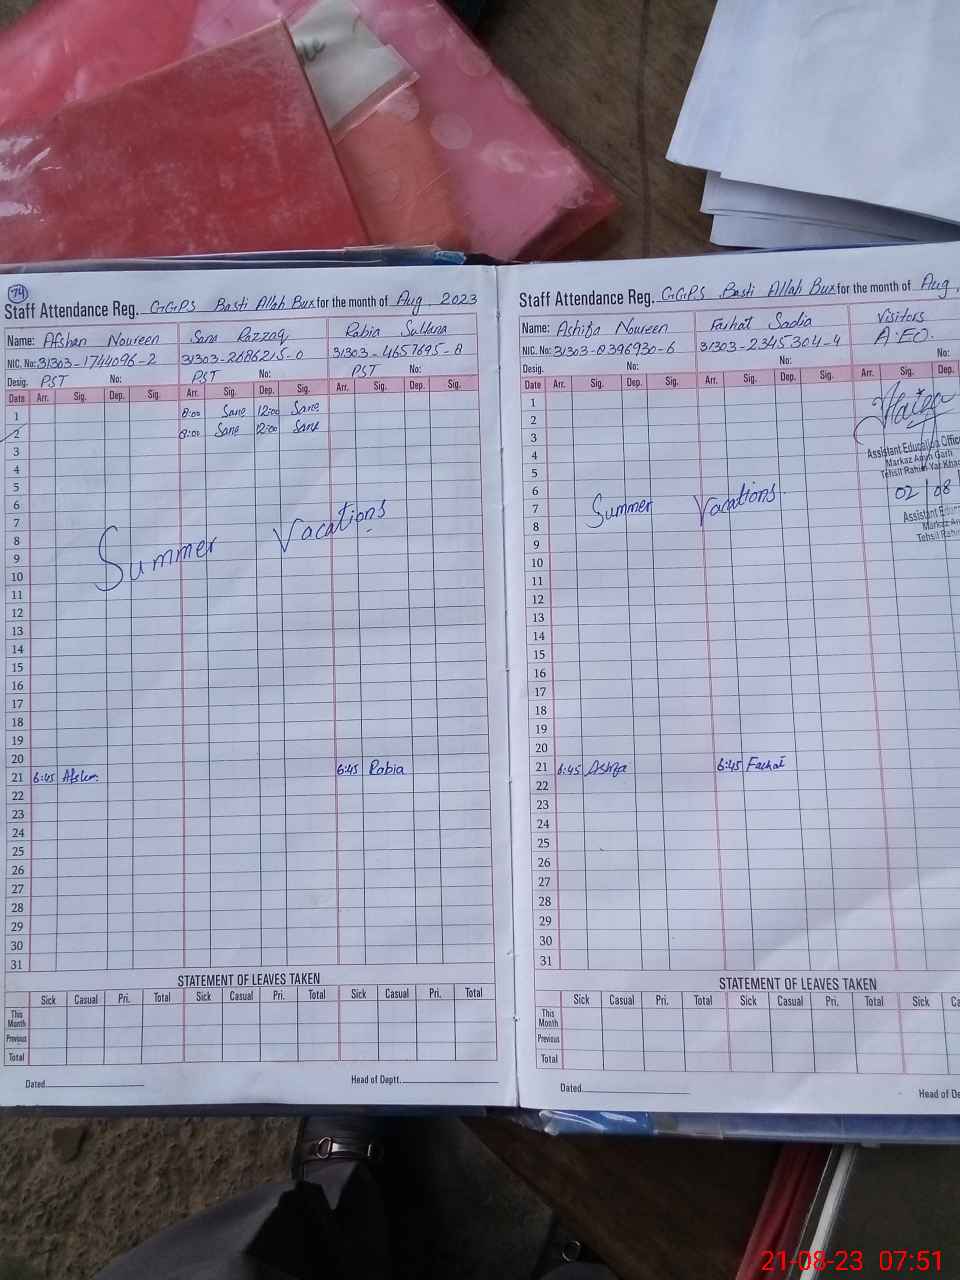 74
Staff Attendance Reg. GGPS Basti Allah Bux for the month of Aug, 2023
Name: Afshan Noureen Sana Razzaq Rabia Sultana
NIC. No: 31303-1744096-2 31303-2686215-0 31303-4657695-8
Desig. PST No: PST No: PST No:
Date Arr. Sig. Dep. Sig. Arr. Sig. Dep. Sig. Arr. Sig. Dep. Sig.
1 8:00 Sana 12:00 Sana
2 8:00 Sana 12:00 Sana
3
4
5
6
7
8
Summer Vacations
9
10
11
12
13
14
15
16
17
18
19
20
21 6:45 Afshan 6:45 Rabia
22
23
24
25
26
27
28
29
30
31
STATEMENT OF LEAVES TAKEN
Sick Casual Pri. Total Sick Casual Pri. Total Sick Casual Pri. Total
This Month
Previous
Total
Dated Head of Deptt.
Staff Attendance Reg. GGPS Basti Allah Bux for the month of Aug,
Name: Ashifa Noureen Farhat Sadia Visitors
NIC. No: 31303-0396930-6 31303-2345304-4 A.E.O.
Desig. No: No: No:
Date Arr. Sig. Dep. Sig. Arr. Sig. Dep. Sig. Arr. Sig. Dep.
1
2
3
4
Assistant Education Office
Markaz Amin Garh
Tehsil Rahim Yar Khan
5
6
02/08
7
Summer Vacations.
8
Assistant
Markaz
Tehsil Rahim
9
10
11
12
13
14
15
16
17
18
19
20
21 6:45 6:45 Farhat
22
23
24
25
26
27
28
29
30
31
STATEMENT OF LEAVES TAKEN
Sick Casual Pri. Total Sick Casual Pri. Total Sick
This Month
Previous
Total
Dated Head of
21-08-23 07:51